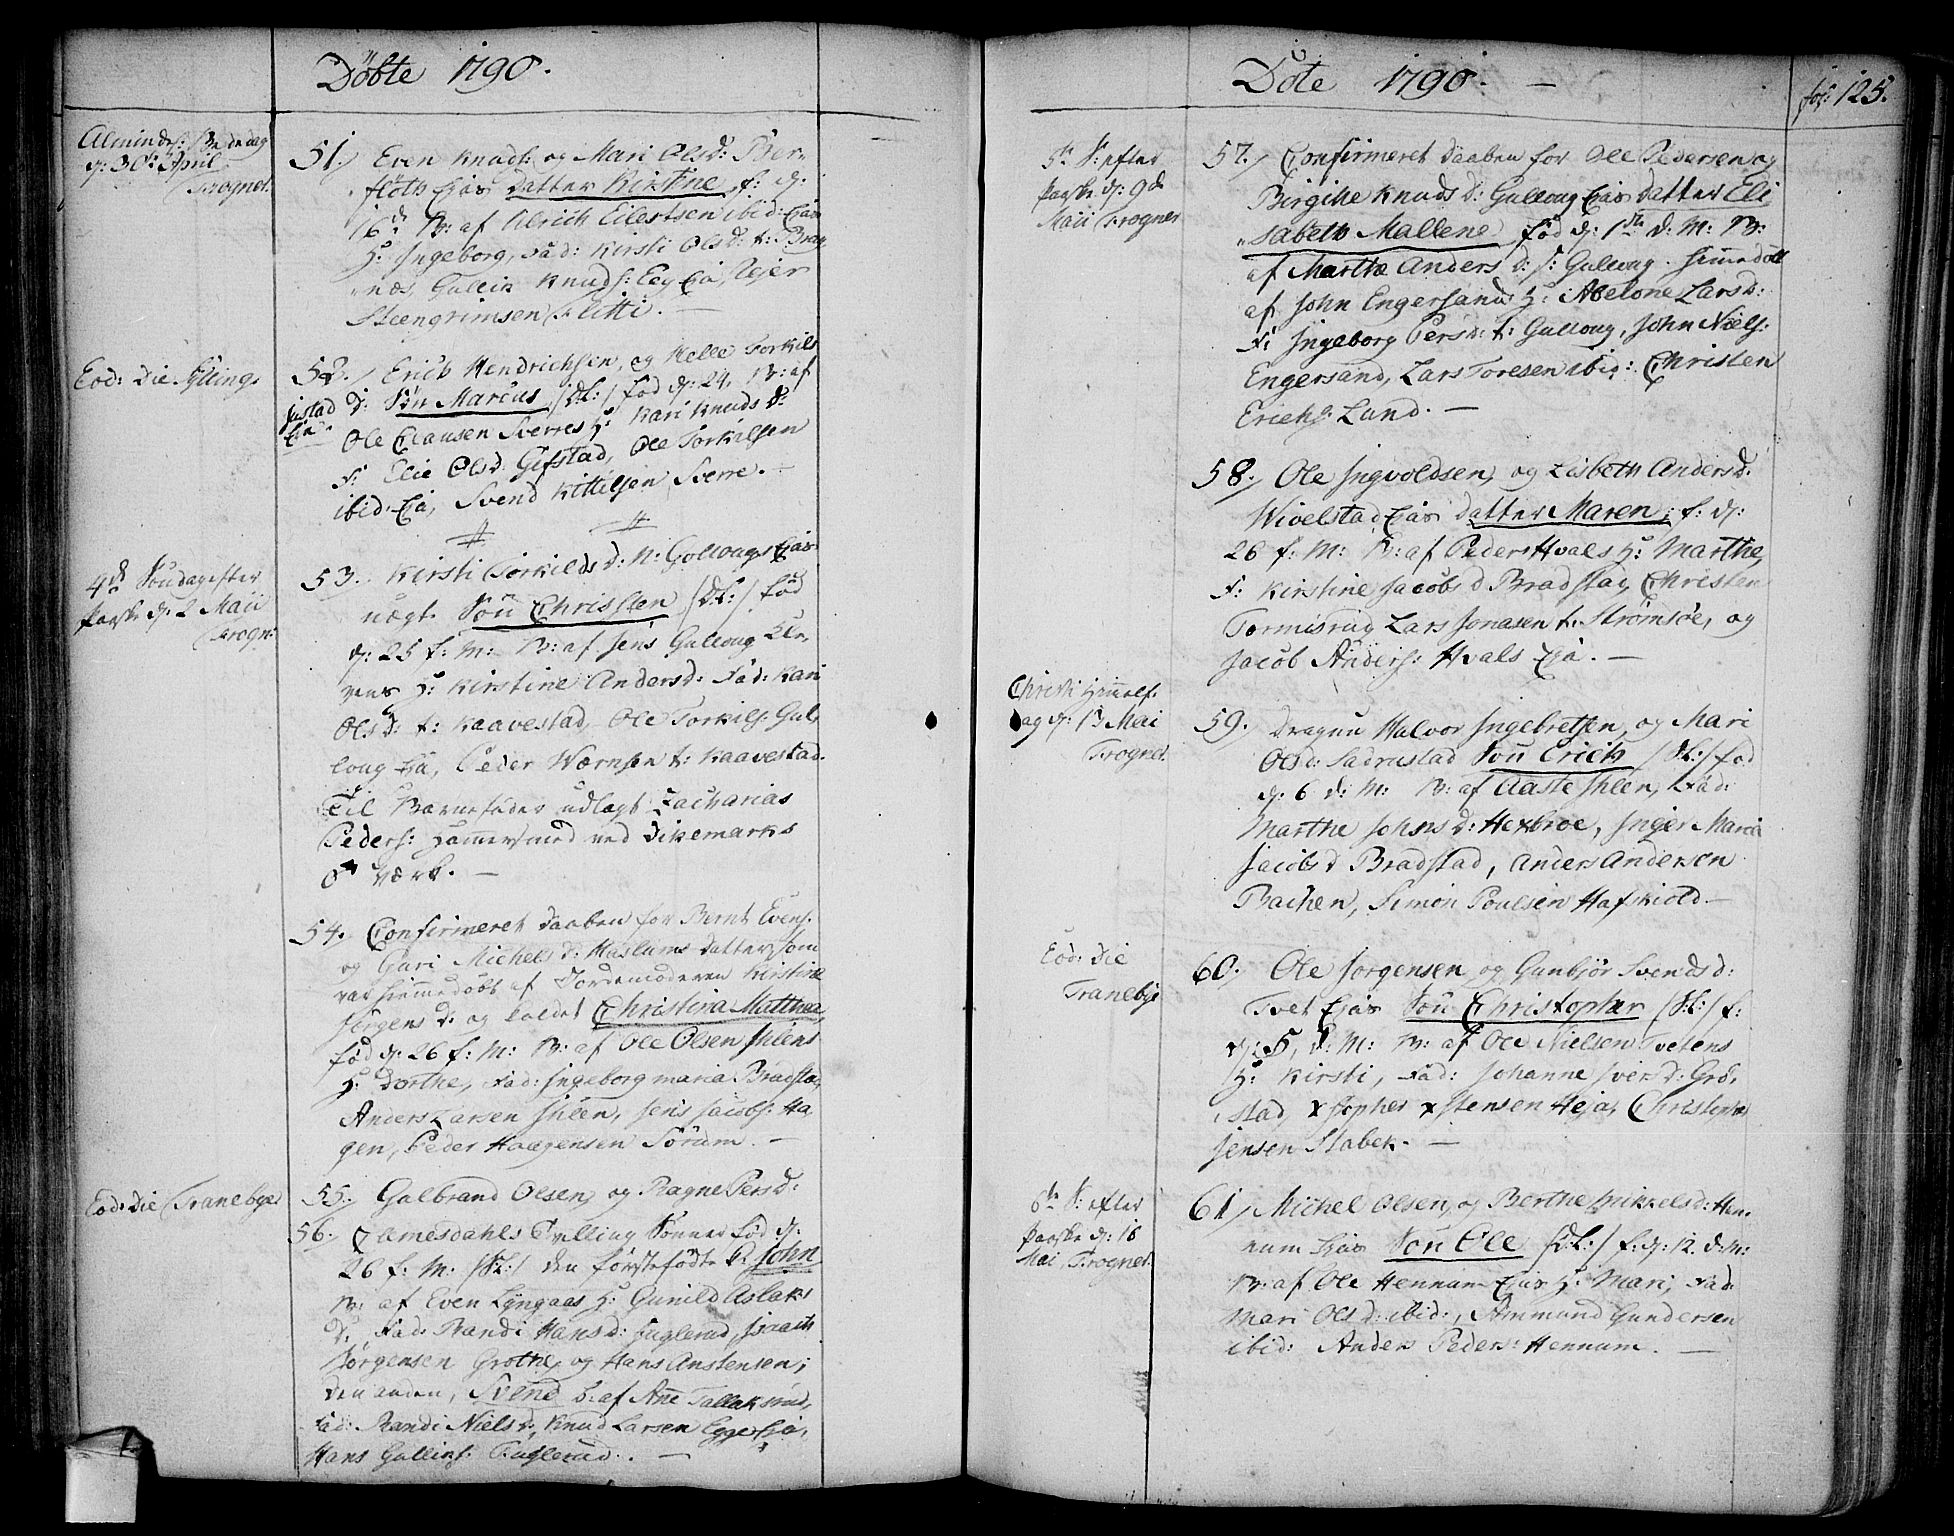 Döbte 1790.
Almindel: Bededag
d: 30te April
Frogner.
51. Even Knuds: og Mari Olsd: Ber-
flöth Ejes datter Kirstine, f: d:
16de B: af Alrich Eilestsen ibid: Ejes
H: Ingeborg, Fad: Kirsti Olsd: t: Brag
næs, Gullik Knuds: Eeg Eje, Rejer
Steengrimsen Flitti. —
Eod: Die Sylling.
52. Erich Hendrichsen, og Helle Torkils
d: Sön Marcus /S:T:/ fød d: 24, B: af
Ole Clausen Sverres H: Kari Knuds d:
F: Elie Olsd: Gifstad, Ole Torkilsen
ibid: Eje, Svend Kittilsen Sverre. —
4de Söndag efter
Paaske d: 2 Maii
Frogn:
53. Kirsti Torkilds d: N: Gullougs Ejes
uægt. Sön Christen /S:T:/ fød
d: 25 f: M: B: af Jens Gulloug
H: Kirstine Andersd: Fad: Kari
Olsd: t: Kaavestad, Ole Torkils: Gul,
loug Eje, Peder Wærnsen t: Kaavestad.
Til Barnefader udlagt Zacharias
Peders: Hammersmed ved Dikemarks
Værk. —
54. Confirmeret daaben for Bernt Evens:
og Guri Michels d: Haslums datter, som
var hiemmedöbt af Jordemoderen Kirstine
Jörgens d: og kaldet Christina Mathea,
fød d: 26 f: M: B: af Ole Olsen Ihlens
H: Dorthe, Fad: Ingeborg Maria Bradstad,
Anders Larsen Ihlen, Jens Jacobs: Ha
gen, Peder Haagensen Sørum. —
Eod: Die Tranebye
55. Gulbrand Olsen, og Ragne Persd:
56. Damesdahls Tvilling Sönner fød d:
26 f: M: /S:T:/ den förstefödte John
B: af Even Lyngaas H: Gunild Aslaks
d: Fad: Randi Hansd: Fuglerud, Isaach
Jörgensen Grothe, og Hans Anstensen;
den anden, Svend b: af Ane Tallaksrud,
Fad: Randi Niels d: Knud Larsen Egge Eje,
Hans Gulliks: Fuglerud. —
Döte 1790. —
fol: 125.
5te S: efter
Paaske d: 9de
Maii Frogner
57. Confirmeret daaben for Ole Pedersen og
Birgithe Knuds d: Gulloug Ejes datter Eli
sabeth Mallene, fød d: 1ste d: M: B:
af Marthe Anders d: S: Gulloug. hiemedöbt
af John Engersands H: Abelone Larsd:
F: Ingeborg Persd: t: Gulloug, John Niels:
Engersand, Lars Toresen ibid: Christen
Erichs: Lund. —
58. Ole Ingvoldsen, og Lisbeth Andersd:
Wivelstad Ejes datter Maren, f: d:
26 f: M: B: af Peders Hvals H: Marthe,
F: Kirstine Jacobs d Bradstad, Christen
Tormisrug Lars Jonasen t: Strømsøe, og
Jacob Anders: Hvals Eje. —
Christi Himmelf:
dag d: 13 Mai
Frogner.
59. Dragun Halvor Ingebretsen, og Mari
Olsd: Sadrustad Sön Erich /S:T:/ fød
d: 6 d: M: B: af Aaste Ihlen, Fad:
Marthe Johns d: Hexbroe, Inger Maria
Jacobs d Bradstad, Anders Andersen
Bachen, Simon Poulsen Hafskiold. —
Eod: Die
Tranebye
60. Ole Jorgensen og Gunbjör Svends d:
Tvet Ejes Sön Christopher /S:T:/ f:
d: 5, d: M: B: af Ole Nielsen Tvetens
H: Kirsti, Fad: Johanne Iversd: Grö,
stad, Xstopher Xstensen Heja, Christopher
Jensen Stabek. —
6te S: efter
Paaske d: 16
Mai, Frogner.
61. Michel Olsen, og Berthe Mikkelsd: Hen
num Ejes Sön Ole /S:T:/ f: d: 12. d: M:
B: af Ole Hennum Ejes H: Mari, Fad:
Mari Olsd: ibid:, Ammund Gundersen
ibid: Anders Peders: Hennum. —